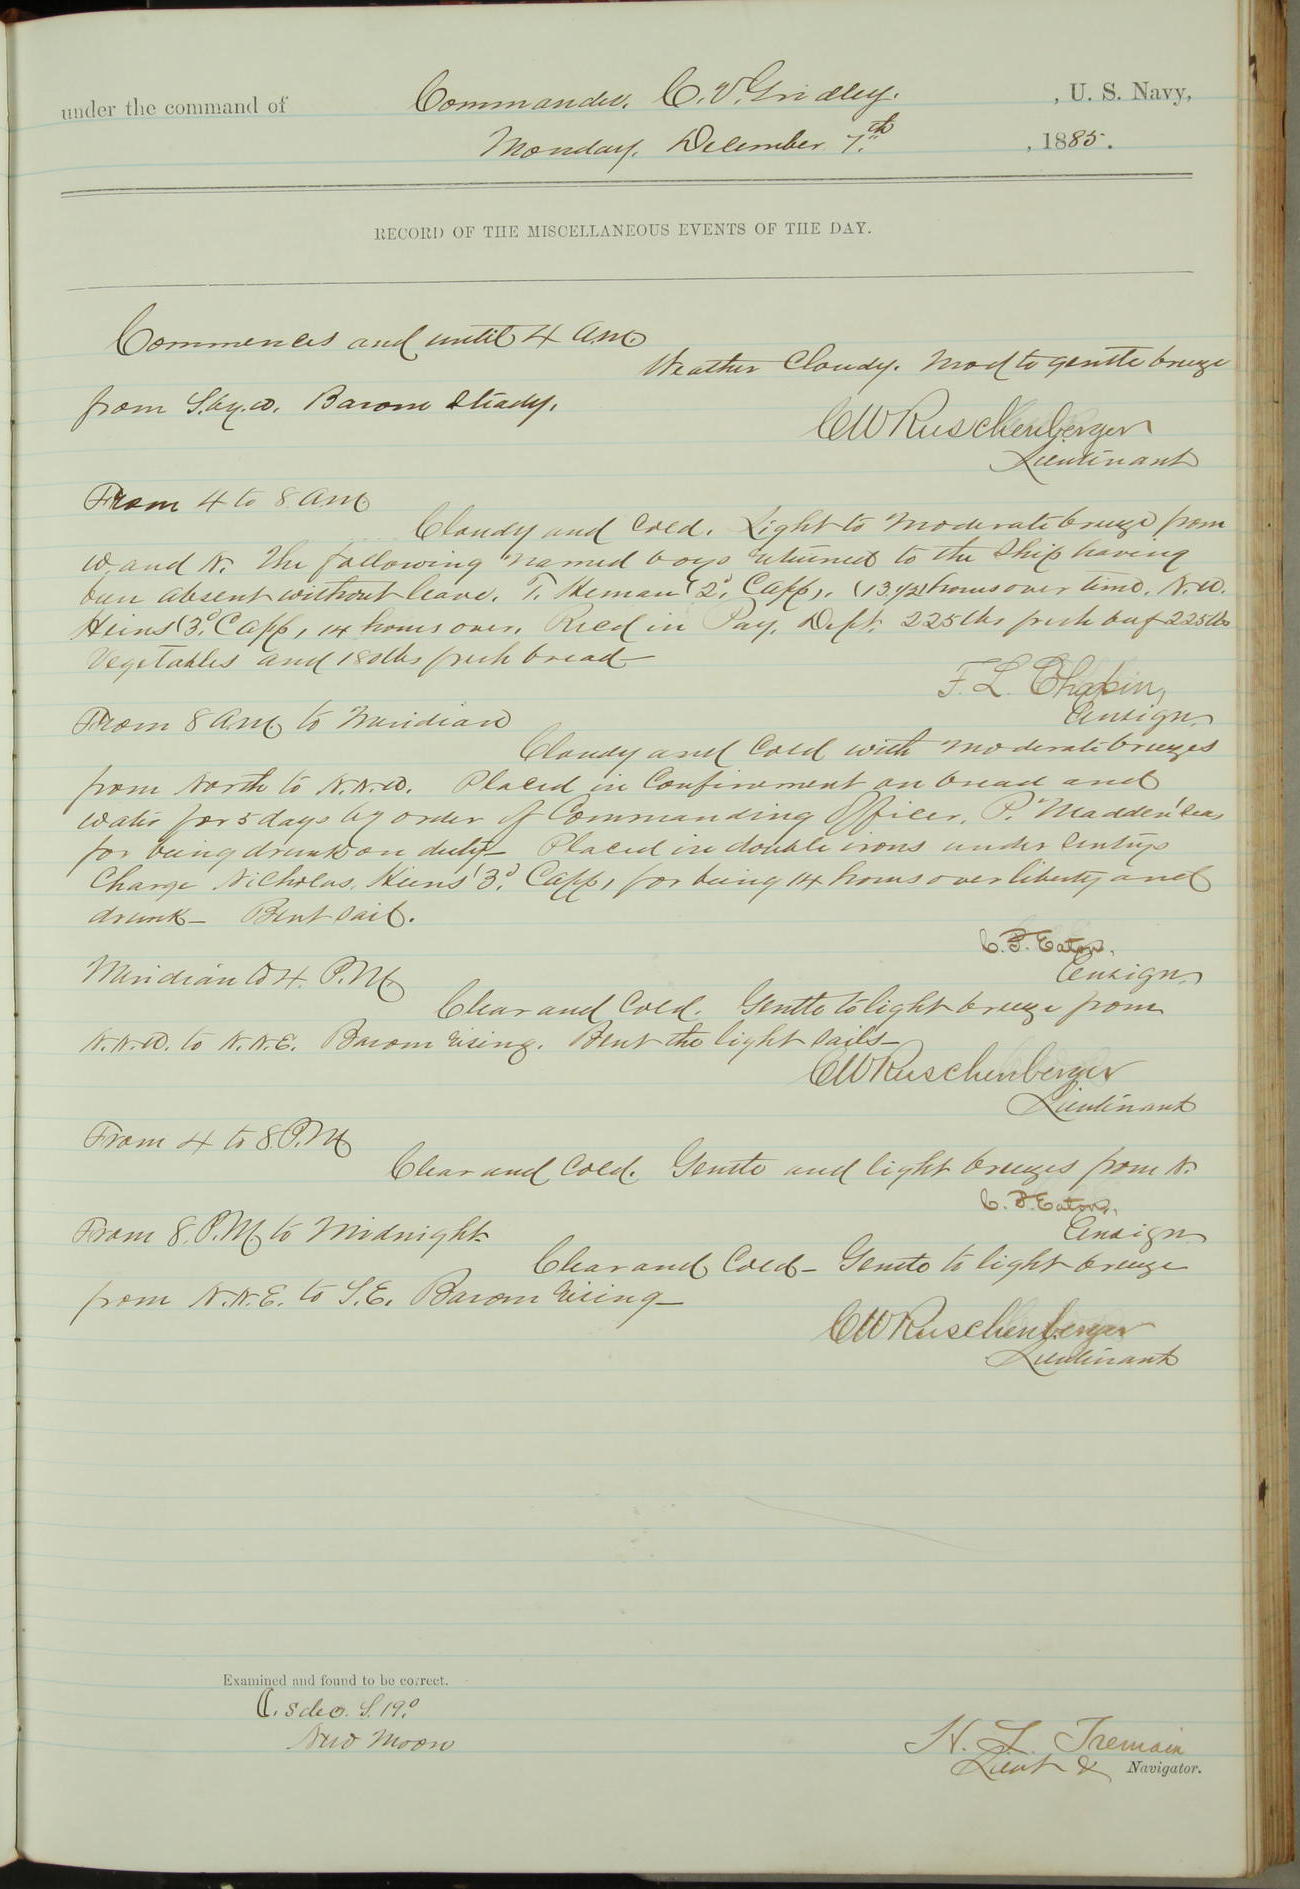 under the command of Commander. C. V. Gridley. , U. S. Navy,
Monday, December 7.th , 1885.
RECORD OF THE MISCELLANEOUS EVENTS OF THE DAY.
Commences and until 4 A.M.
Weather Cloudy. Mod to gentle breeze
from S.by.W. Barom Steady.
CW Ruschenberger
Lieutenant
From 4 to 8 A.M.
Cloudy and Cold. Light to Moderate breeze from
W. and N. The following named boys returned to the Ship having
been absent without leave. T. Heman (2d Capp,. (13 1/2) hours over time. N.W.
Heins (3d Capp, 14 hours over. Recd in Pay. Dept. 225 lbs fresh beef 225 lbs
Vegetables and 180 lbs fresh bread—
F. L. Chapin,
Ensign.
From 8 A.M. to Meridian
Cloudy and Cold with Moderate breezes
from North to N.N.W. Placed in Confinement on bread and
water for 5 days by order of Commanding Officer, P. Madden Seas
for being drunk on duty— Placed in double irons under Sentrys
Charge Nicholas, Hiens (3d Capp, for being 14 hours over liberty and
drunk— Bent Sail.
C. F. Eaton.
Ensign.
Meridian to 4. P.M.
Clear and Cold. Gentle to light breeze from
N.N.W. to N.N.E. Barom rising. Bent the light Sails—
CW Ruschenberger
Lieutenant
From 4 to 8 P.M.
Clear and Cold. Gentle and light breezes from N.
C. F. Eaton.
Ensign
From 8. P.M. to Midnight
Clear and Cold— Gentle to light breeze
from N.N.E. to S.E. Barom rising—
CW Ruschenberger
Lieutenant
Examined and found to be correct.
S 19.°
New Moon
H. L. Tremain
Lieut & Navigator.